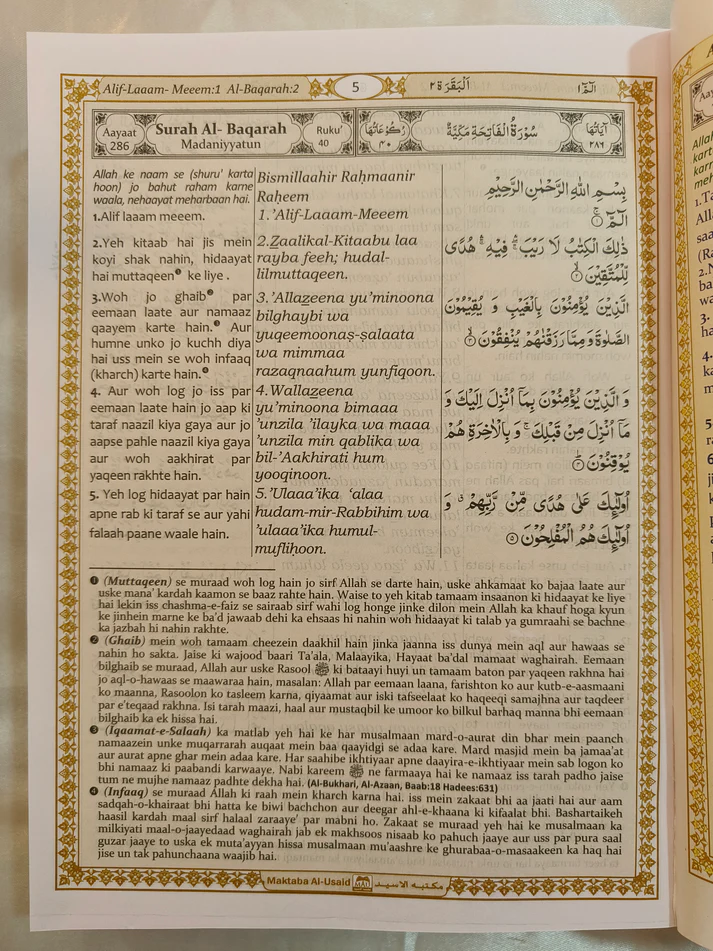 Alif-Laaam- Meeem:1 Al-Baqarah:2 5 اَلْبَقَرَة ٢ الٓمّٓ ١
Aayaat 286
Surah Al- Baqarah
Madaniyyatun
Ruku' 40
رُكُوْعَاتُهَا ٤٠
سُوْرَةُ الْفَاتِحَةِ مَكِّيَّةٌ
اٰيَاتُهَا ٢٨٦
Allah ke naam se (shuru' karta
hoon) jo bahut raham karne
waala, nehaayat meharbaan hai.
1.Alif laaam meeem.
2.Yeh kitaab hai jis mein
koyi shak nahin, hidaayat
hai muttaqeen❶ ke liye .
3.Woh jo ghaib❷ par
eemaan laate aur namaaz
qaayem karte hain.❸ Aur
humne unko jo kuchh diya
hai uss mein se woh infaaq
(kharch) karte hain.❹
4. Aur woh log jo iss par
eemaan laate hain jo aap ki
taraf naazil kiya gaya aur jo
aapse pahle naazil kiya gaya
aur woh aakhirat par
yaqeen rakhte hain.
5. Yeh log hidaayat par hain
apne rab ki taraf se aur yahi
falaah paane waale hain.
Bismillaahir Raḥmaanir
Raḥeem
1.’Alif-Laaam-Meeem
2.Z̲aalikal-Kitaabu laa
rayba feeh; hudal-
lilmuttaqeen.
3.’Allaz̲eena yu’minoona
bilghaybi wa
yuqeemoonaṣ-ṣalaata
wa mimmaa
razaqnaahum yunfiqoon.
4.Wallaz̲eena
yu’minoona bimaaa
’unzila ’ilayka wa maaa
’unzila min qablika wa
bil-’Aakhirati hum
yooqinoon.
5.’Ulaaa’ika ‘alaa
hudam-mir-Rabbihim wa
’ulaaa’ika humul-
mufliḥoon.
بِسْمِ اللهِ الرَّحْمٰنِ الرَّحِيْمِ
الٓمّٓ ۚ ١
ذٰلِكَ الْكِتٰبُ لَا رَيْبَ ۛۖ فِيْهِ ۛۚ هُدًى
لِّلْمُتَّقِيْنَ ۙ ٢
الَّذِيْنَ يُؤْمِنُوْنَ بِالْغَيْبِ وَ يُقِيْمُوْنَ
الصَّلٰوةَ وَ مِمَّا رَزَقْنٰهُمْ يُنْفِقُوْنَ ۙ ٣
وَ الَّذِيْنَ يُؤْمِنُوْنَ بِمَاۤ اُنْزِلَ اِلَيْكَ وَ
مَاۤ اُنْزِلَ مِنْ قَبْلِكَ ۚ وَ بِالْاٰخِرَةِ هُمْ
يُوْقِنُوْنَ ؕ ٤
اُولٰٓئِكَ عَلٰى هُدًى مِّنْ رَّبِّهِمْ ۗ وَ
اُولٰٓئِكَ هُمُ الْمُفْلِحُوْنَ ٥
❶ (Muttaqeen) se muraad woh log hain jo sirf Allah se darte hain, uske ahkamaat ko bajaa laate aur
uske mana' kardah kaamon se baaz rahte hain. Waise to yeh kitab tamaam insaanon ki hidaayat ke liye
hai lekin iss chashma-e-faiz se sairaab sirf wahi log honge jinke dilon mein Allah ka khauf hoga kyun
ke jinhein marne ke ba'd jawaab dehi ka ehsaas hi nahin woh hidaayat ki talab ya gumraahi se bachne
ka jazbah hi nahin rakhte.
❷ (Ghaib) mein woh tamaam cheezein daakhil hain jinka jaanna iss dunya mein aql aur hawaas se
nahin ho sakta. Jaise ki wajood baari Ta'ala, Malaayika, Hayaat ba'dal mamaat waghairah. Eemaan
bilghaib se muraad, Allah aur uske Rasool ﷺ ki bataayi huyi un tamaam baton par yaqeen rakhna hai
jo aql-o-hawaas se maawaraa hain, masalan: Allah par eemaan laana, farishton ko aur kutb-e-aasmaani
ko maanna, Rasoolon ko tasleem karna, qiyaamat aur iski tafseelaat ko haqeeqi samajhna aur taqdeer
par e'teqaad rakhna. Isi tarah maazi, haal aur mustaqbil ke umoor ko bilkul barhaq manna bhi eemaan
bilghaib ka ek hissa hai.
❸ (Iqaamat-e-Salaah) ka matlab yeh hai ke har musalmaan mard-o-aurat din bhar mein paanch
namaazein unke muqarrarah auqaat mein baa qaayidgi se adaa kare. Mard masjid mein ba jamaa'at
aur aurat apne ghar mein adaa kare. Har saahibe ikhtiyaar apne daayira-e-ikhtiyaar mein sab logon ko
bhi namaaz ki paabandi karwaaye. Nabi kareem ﷺ ne farmaaya hai ke namaaz iss tarah padho jaise
tum ne mujhe namaaz padhte dekha hai. (Al-Bukhari, Al-Azaan, Baab:18 Hadees:631)
❹ (Infaaq) se muraad Allah ki raah mein kharch karna hai. iss mein zakaat bhi aa jaati hai aur aam
sadqah-o-khairaat bhi hatta ke biwi bachchon aur deegar ahl-e-khaana ki kifaalat bhi. Bashartaikeh
haasil kardah maal sirf halaal zaraaye' par mabni ho. Zakaat se muraad yeh hai ke musalmaan ka
milkiyati maal-o-jaayedaad waghairah jab ek makhsoos nisaab ko pahuch jaaye aur uss par pura saal
guzar jaaye to uska ek muta'ayyan hissa musalmaan mu'aashre ke ghurabaa-o-masaakeen ka haq hai
jise un tak pahunchaana waajib hai.
Maktaba Al-Usaid مكتبه الاسيد